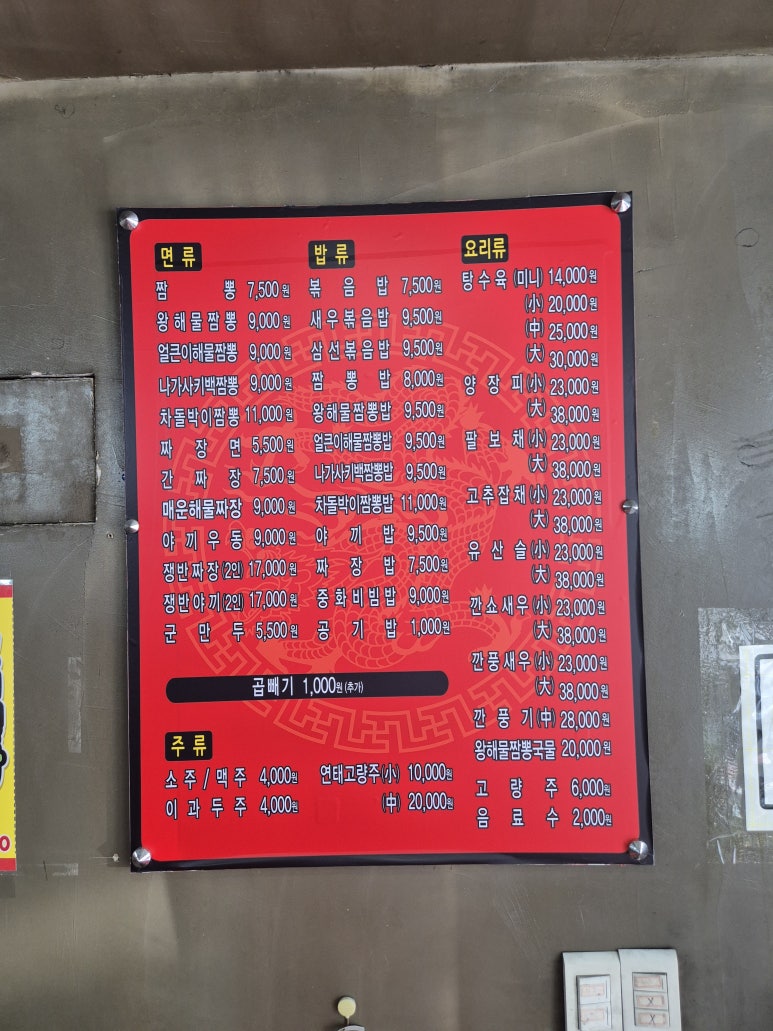 면 류
짬 뽕 7,500원
왕해물짬뽕 9,000원
얼큰이해물짬뽕 9,000원
나가사키백짬뽕 9,000원
차돌박이짬뽕 11,000원
짜 장 면 5,500원
간 짜 장 7,500원
매운해물짜장 9,000원
야 끼 우 동 9,000원
쟁반짜장(2인) 17,000원
쟁반야끼(2인) 17,000원
군 만 두 5,500원
밥 류
볶 음 밥 7,500원
새우볶음밥 9,500원
삼선볶음밥 9,500원
짬 뽕 밥 8,000원
왕해물짬뽕밥 9,500원
얼큰이해물짬뽕밥 9,500원
나가사키백짬뽕밥 9,500원
차돌박이짬뽕밥 11,000원
야 끼 밥 9,500원
짜 장 밥 7,500원
중화비빔밥 9,000원
공 기 밥 1,000원
곱빼기 1,000원(추가)
주 류
소 주 / 맥 주 4,000원
이 과 두 주 4,000원
연태고량주(小) 10,000원
(中) 20,000원
요리류
탕수육(미니) 14,000원
(小) 20,000원
(中) 25,000원
(大) 30,000원
양 장 피(小) 23,000원
(大) 38,000원
팔 보 채(小) 23,000원
(大) 38,000원
고추잡채(小) 23,000원
(大) 38,000원
유 산 슬(小) 23,000원
(大) 38,000원
깐쇼새우(小) 23,000원
(大) 38,000원
깐풍새우(小) 23,000원
(大) 38,000원
깐 풍 기(中) 28,000원
왕해물짬뽕국물 20,000원
고 량 주 6,000원
음 료 수 2,000원